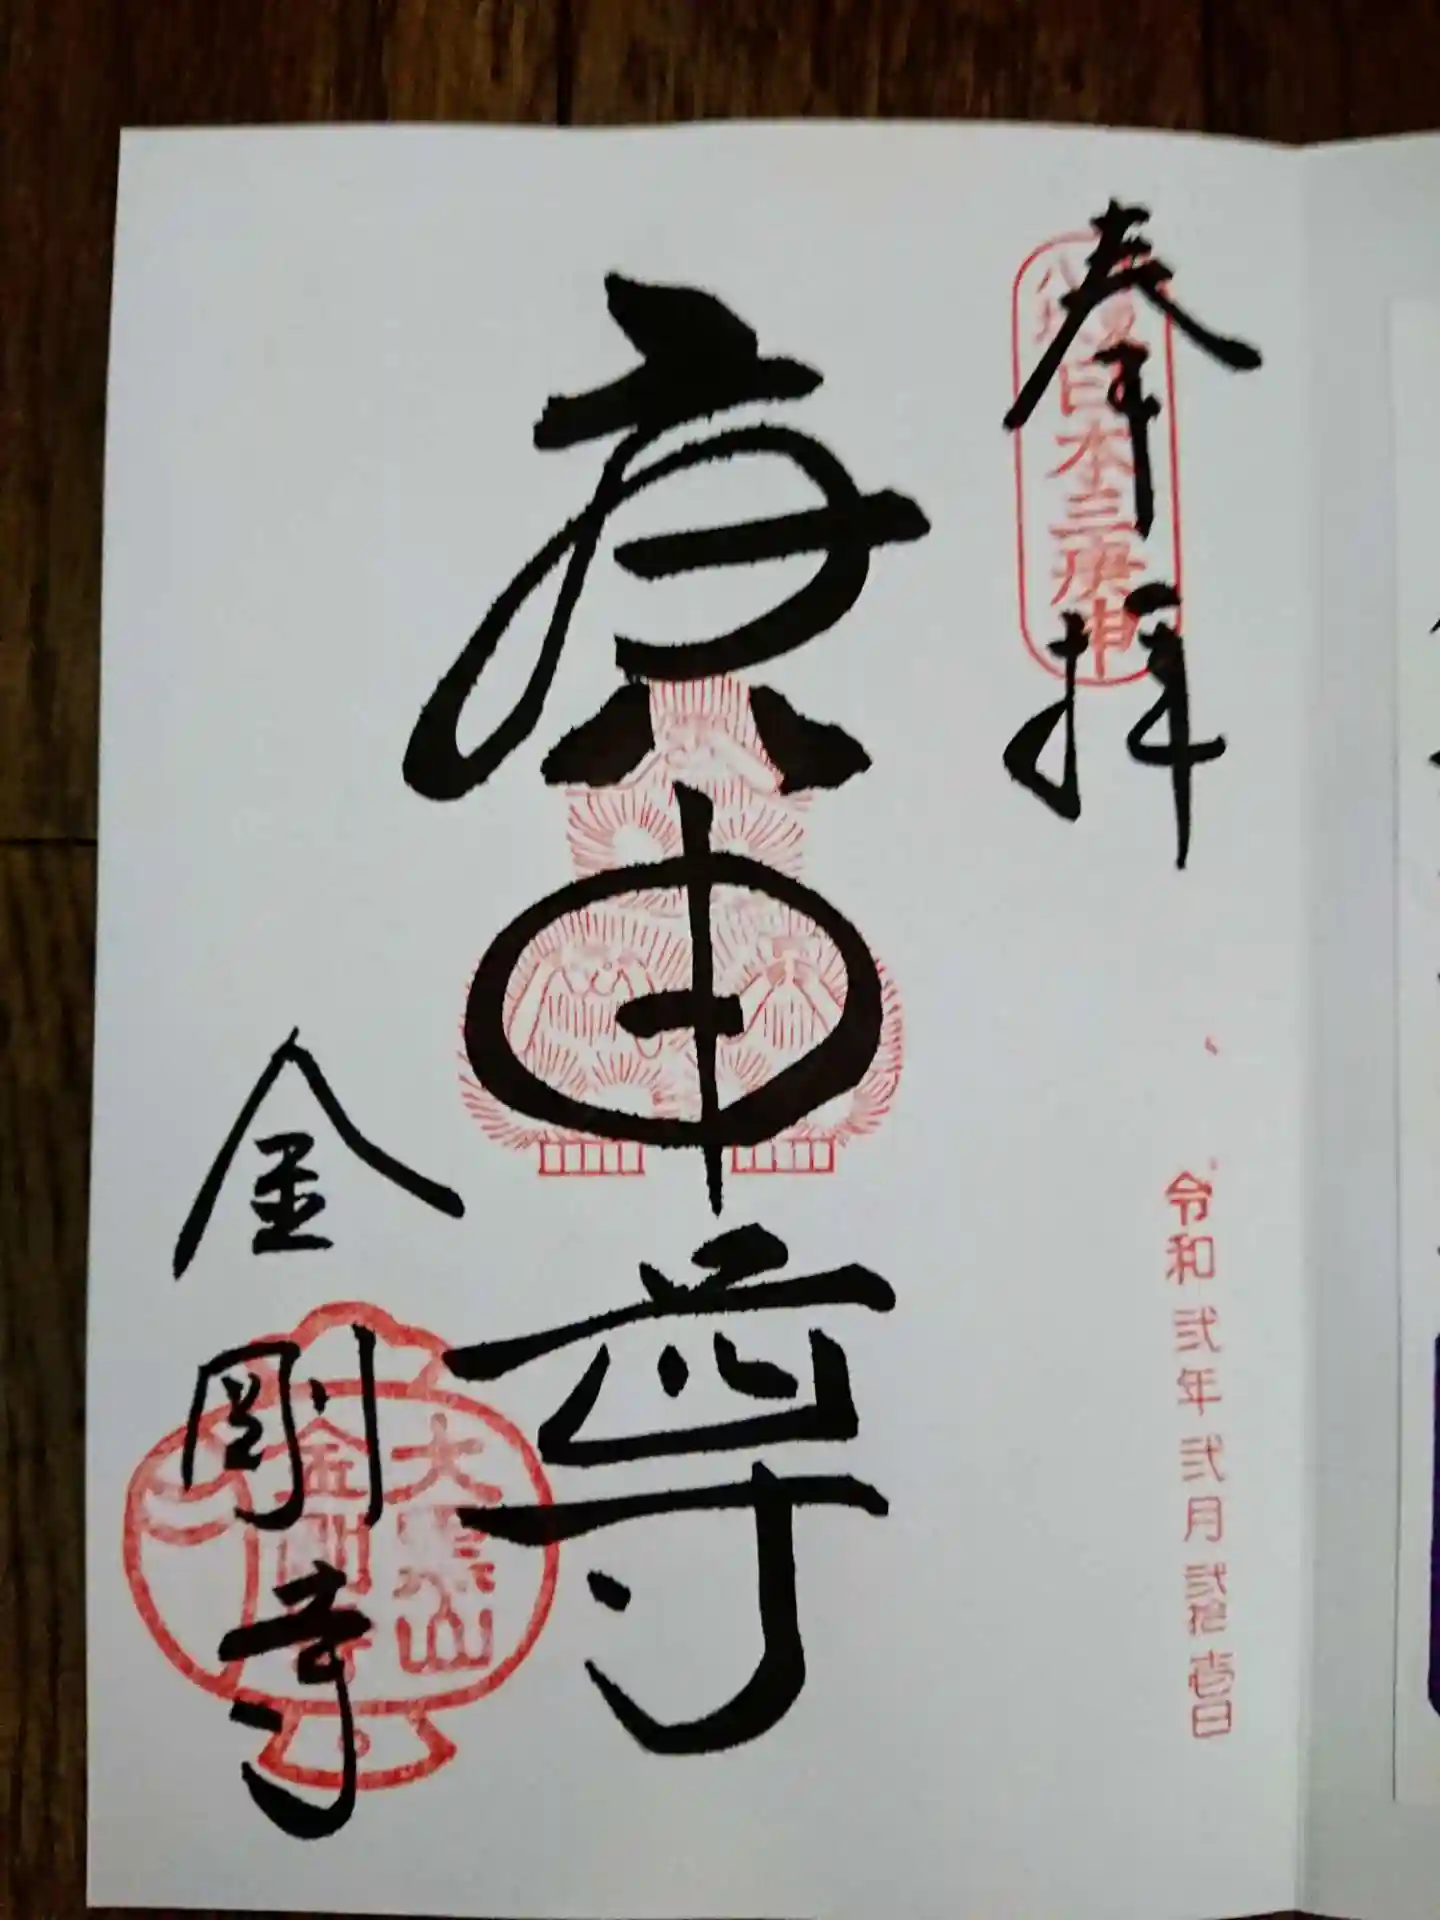 奉拝
日本三庚申
令和弐年弐月弐拾壱日
庚申尊
金剛寺
大黒山
金剛寺